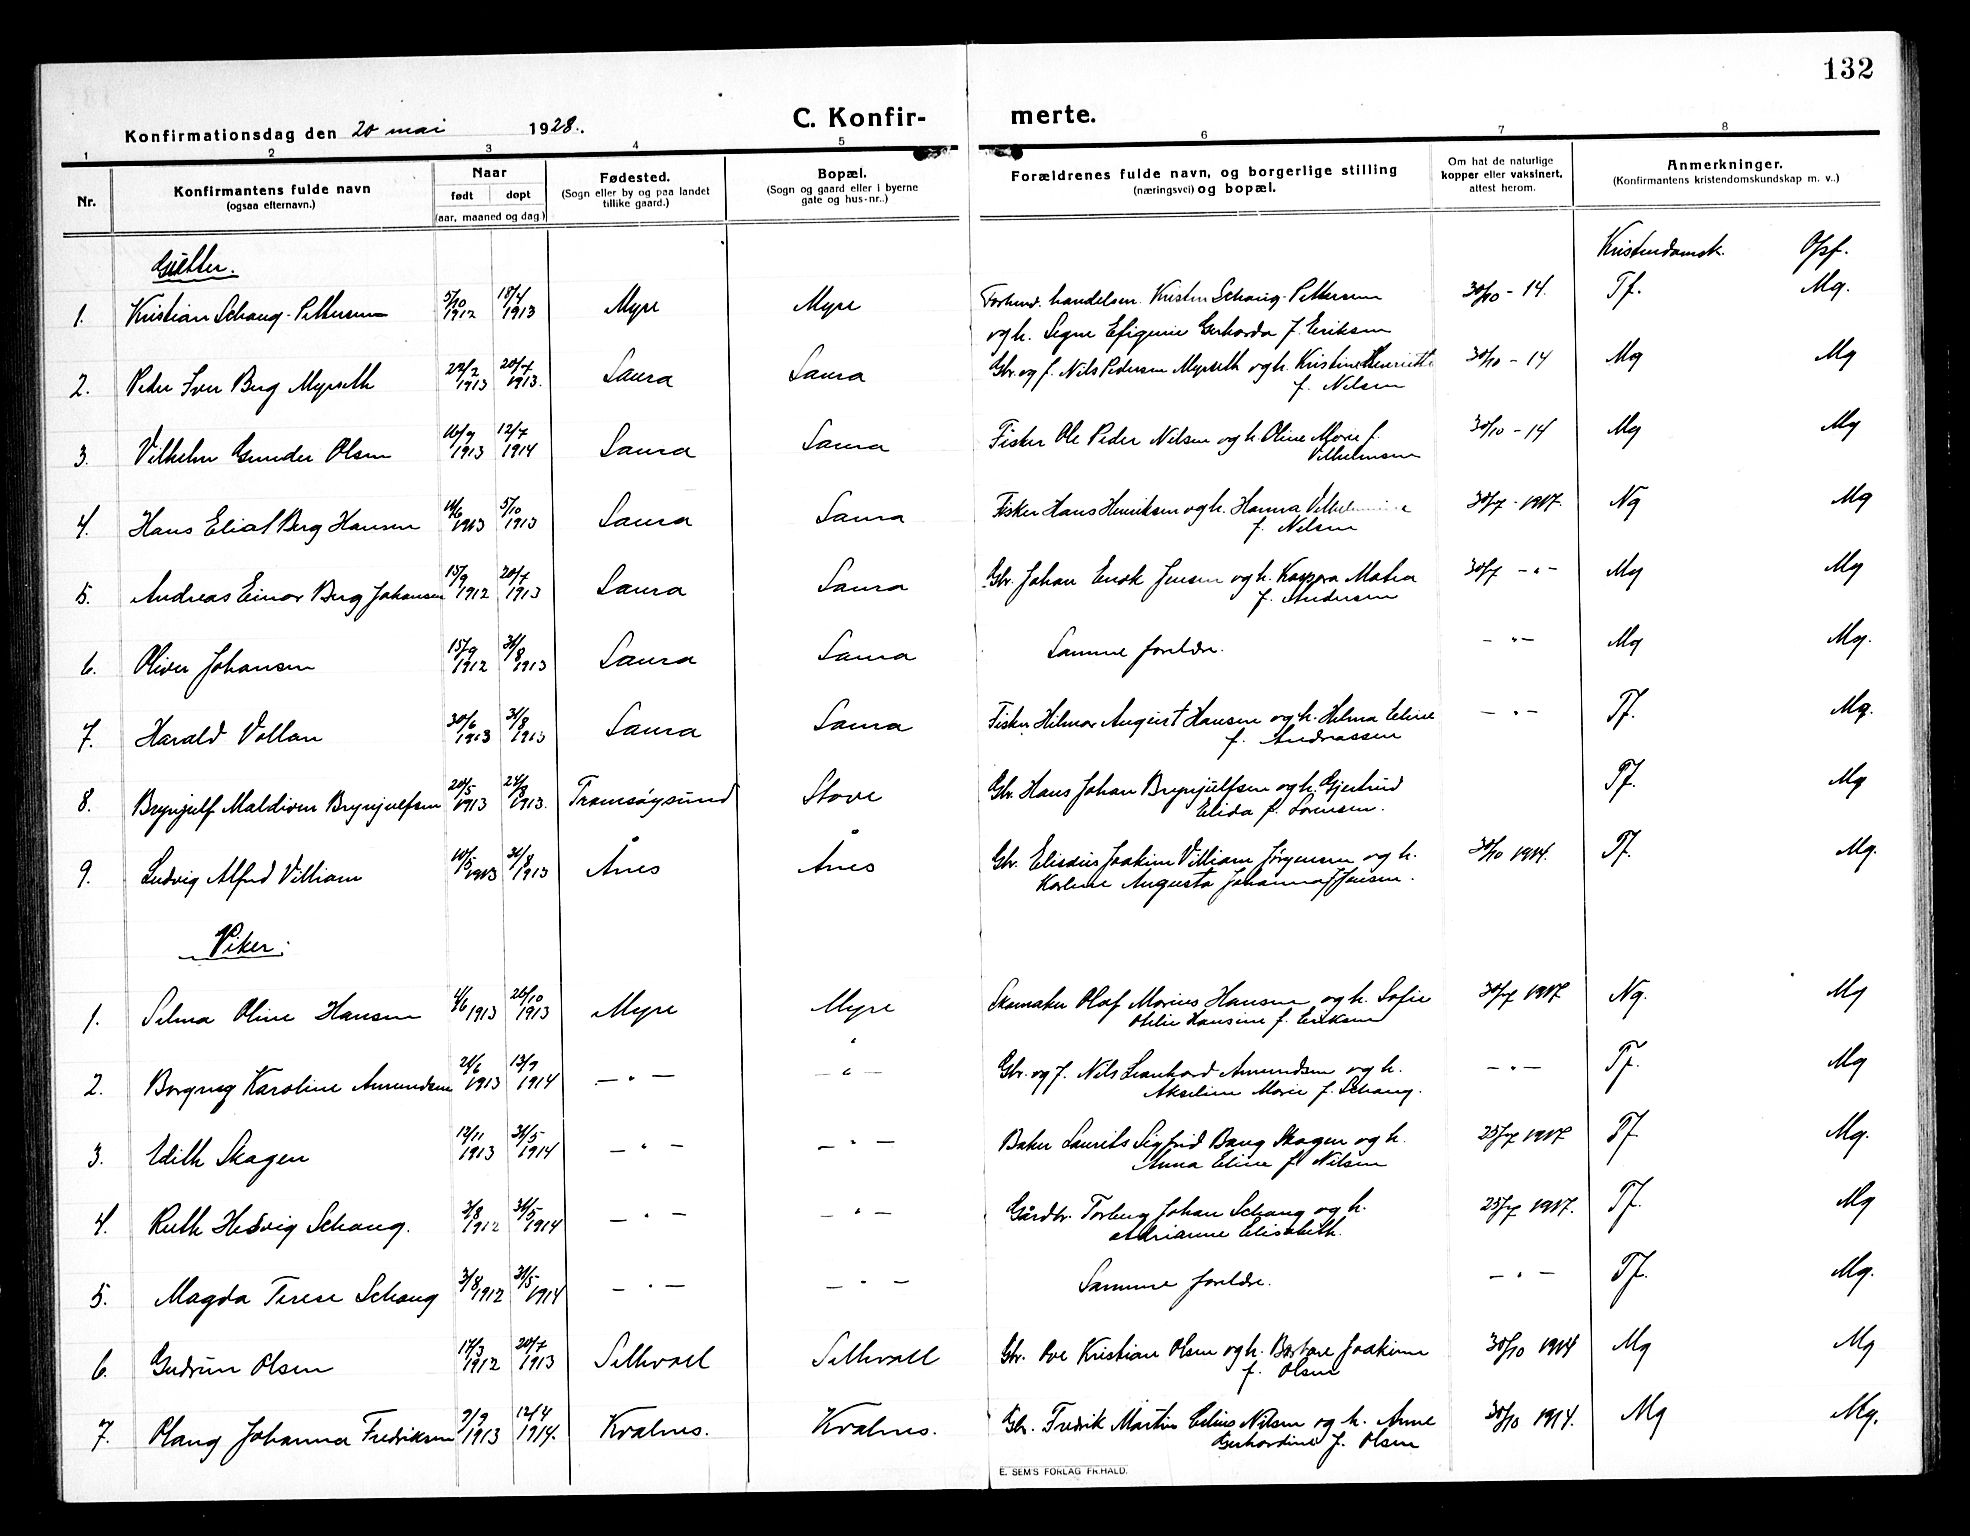 132
Konfirmationsdag den 20 mai 1928.
C. Konfirmerte.
1 2 3 4 5 6 7 8
Nr.
Konfirmantens fulde navn
(ogsaa efternavn.)
Naar
født døpt
(aar, maaned og dag)
Fødested.
(Sogn eller by og paa landet
tillike gaard.)
Bopæl.
(Sogn og gaard eller i byerne
gate og hus-nr..)
Forældrenes fulde navn, og borgerlige stilling
(næringsvei) og bopæl.
Om hat de naturlige
kopper eller vaksinert,
attest herom.
Anmerkninger.
(Konfirmantens kristendomskundskap m. v..)
Gutter.
Kristendomsk. Opf.
1. Kristian Schaug-Pettersen 5/10 1912 18/4 1913 Myre Myre Forhenv. handelsm. Kristen Schaug-Pettersen 30/10 - 14. Tf. Mg.
og h. Signe Efigenie Gerharda f. Eriksen
2. Peder Iver Berg Myrseth 22/2 1913 20/7 1913. Saura Saura Gbr. og f. Nils Pedersen Myrseth og h. Kristine Henriette 30/10 - 14 Mg Mg
f. Nilsen
3. Vilhelm Gunder Olsen 16/9 1913 12/7 1914 Saura Saura Fisker Ole Peder Nilsen og h. Oline Marie f. 30/10 - 14 Mg Mg
Vilhelmsen
4. Hans Eliat Berg Hansen 1913 5/10 1913 Saura Saura Fisker Hans Henriksen og h. Hanna Vilhelmine 30/7 - 1917. Ng Mg
f. Nilsen
5. Andreas Einar Berg Johansen 15/9 1912 20/7 1913 Saura Saura Gbr. Johan Enok Jensen og h. Kaspara Matea 30/7 - " - Mg Mg
f. Andersen
6. Oliver Johansen 15/9 1912 31/8 1913 Saura Saura Samme forældre. - " - Mg Mg.
7. Harald Vollan 30/6 1913 31/8 1913 Saura Saura Fisker Hilmar August Hansen og h. Helma Eline - " - Tf. Mg.
f. Andreassen
8. Brynjulf Maldiven Brynjulfsen 20/5 1913 24/8 1913. Tromsøysund Stave Gbr. Hans Johan Brynjulfsen og h. Gjertrud Tf. Mg
Elida f. Sørensen.
9. Ludvig Alfred Villiam 10/5 1913 31/8 1913 Ånes Ånes Gbr. Elisæus Joakim Villiam Jørgensen og h. 30/10 1914. Tf. Mg.
Karline Augusta Johanna f. Jensen.
Piker.
1. Selma Oline Hansen 4/6 1913 26/10 1913 Myre Myre Skomaker Olaf Marius Hansen og h. Sofie 30/7 1917 Ng. Mg
Otelie Hansine f. Eriksen
2. Borgny Karoline Amundsen 21/6 1913 13/9 1914 - " - - " - Gbr. og f. Nils Leonhard Amundsen og h. - " - Tf. Mg
Akseline Marie f. Schaug.
3. Edith Skagen 12/11 1913 31/5 1914 - " - - " - Baker Laurits Sigfrid Bang Skagen og h. 25/7 1917 Tf. Mg.
Anna Eline f. Nilsen
4. Ruth Hedvig Schaug. 3/8 1912 31/5 1914 - " - - " - Gårdbr. Torberg Johan Schaug og h. 25/7 1917. Tf. Mg
Adrianne Elisabeth.
5. Magda Terese Schaug 3/8 1912 31/5 1914 - " - - " - Samme forældre. - " - Tf. Mg.
6. Gudrun Olsen 17/3 1912 20/7 1913 Selhvatl Selhvatl Gbr. Ove Kristian Olsen og h. Barbara Joakime 30/10 1914 Mg Mg
f. Olsen
7. Olaug Johanna Fredriksen 9/9 1913 12/4 1914. Kvalnes. Kvalnes. Gbr. Fredrik Martin Edius Nilsen og h. Anne 30/10 1914. Mg Mg.
Gerhardine f. Olsen
E. SEM'S FORLAG FR.HALD.